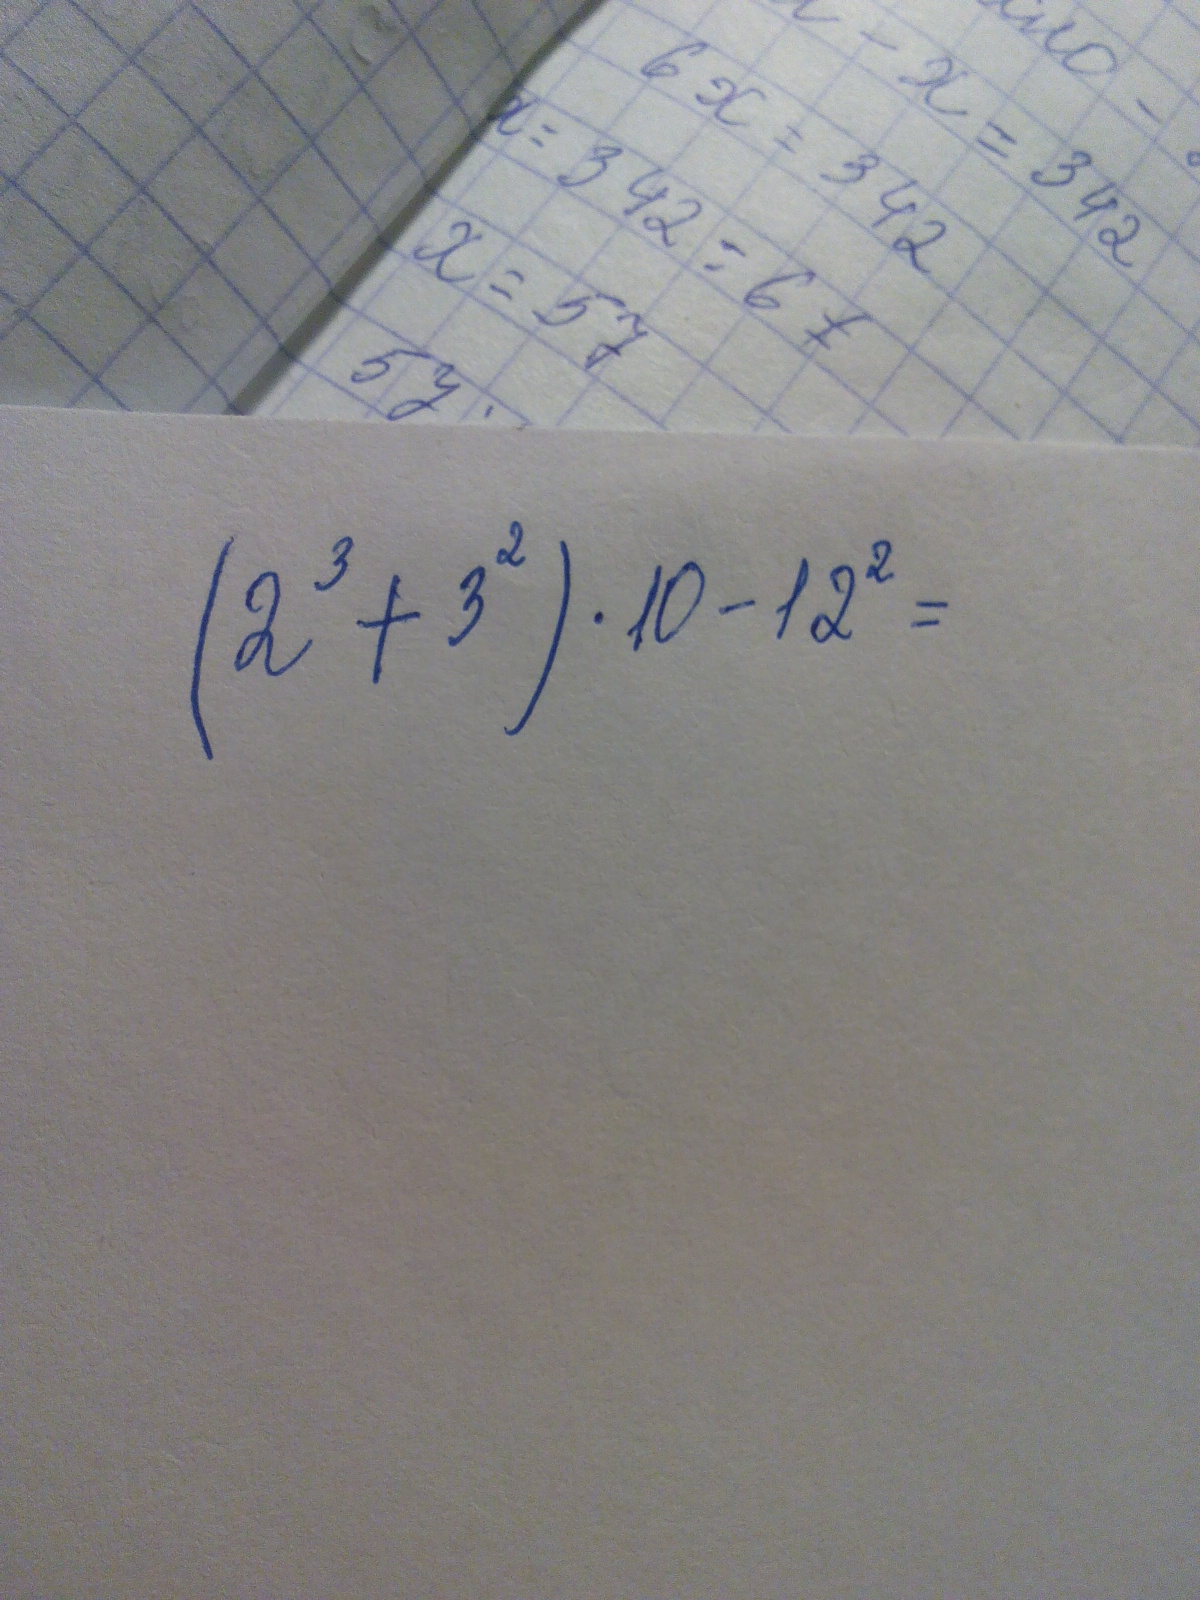 - x = 342
6x = 342
x = 342 : 6
x = 57
57.
(2³ + 3²) · 10 - 12² =